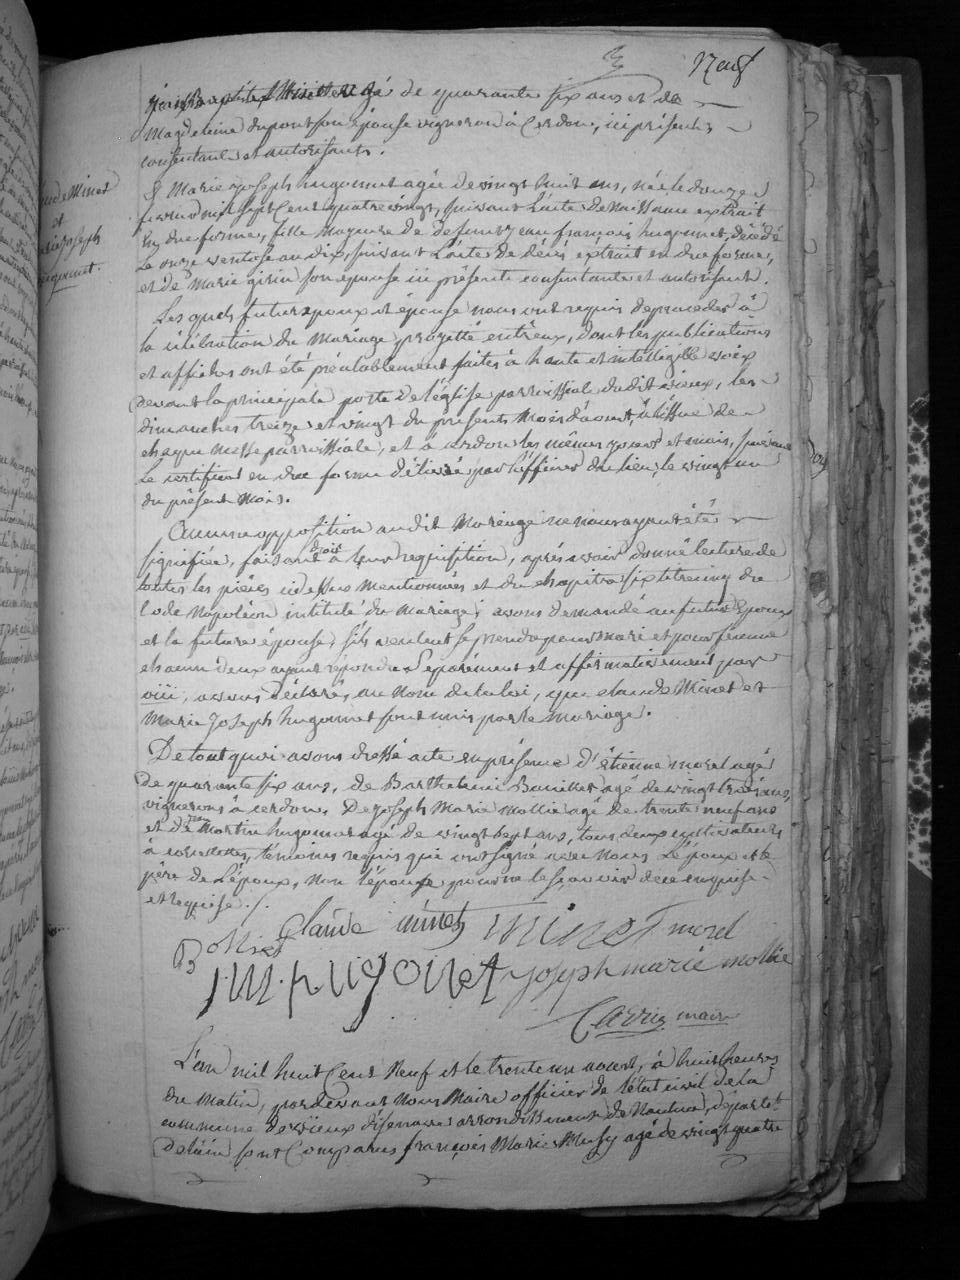 Neuf
jean Baptiste Minet agé de quarante six ans et de
Magdeleine dupont son épouse vigneron à Cerdon, ici présents
consentants et autorisants.
Claude Minet
et
Marie Joseph
hugonnet.
& Marie Joseph hugonnet agée de vingt huit ans, née le douze
mil sept Cent quatre vingt, suivant L'acte de Naissance extrait
En due forme, fille Majeure de deffunt jean françois hugonnet, décédé
Le onze ventose an dix, suivant L'acte de décès extrait en due forme,
et de Marie girin son épouse ici présente consentante et autorisant.
Les quels futurs époux et épouse nous ont requis de proceder à
la célébration du Mariage projetté entr'eux, dont les publications
et affiches ont été préalablement faites à haute et intelligible voix
devant la principale porte de l'église parroissiale dudit vieux, les
dimanches treize et vingt du présents Mois d'aoust, à l'issue de
chaque Messe parroissiale, et à cerdon les mêmes jours et mois, suivant
Le certificat en due forme délivré par l'officier du lieu, le vingt un
du présent Mois.
Aucune opposition audit Mariage ne nous ayant été
signifiée, faisant droit à leur requisition, après avoir donné lecture de
toutes les pièces ci dessus mentionnées et du chapitre six titre cinq du
Code Napoléon intitulé du Mariage, avons demandé au futur Epoux
et la future épouse, s'ils veulent se prendre pour mari et pour femme
chacun d'eux ayant répondu séparément et affirmativement par
oui, avons déclaré, au nom de la loi, que claude Minet et
Marie Joseph hugonnet sont unis par le mariage.
De tout quoi avons dressé acte en présence d'étienne morel agé
de quarante six ans, de Barthelemi Bonillet agé de vingt trois ans,
vignerons à cerdon, De joseph Marie mollie agé de trente neuf ans
et de Martin hugonnet agé de vingt sept ans, tous deux cultivateurs
à témoins requis qui ont signé avec nous L'époux et le
père de L'époux, non l'épouse pour ne le sçavoir de ce enquise
et requise. /.
Claude minet minet morel
j.m. hugonnet joseph marie mollie
maire
L'an mil huit Cent Neuf et le trente un aoust, à huit heures
du Matin, pardevant Nous Maire officier de l'état civil de la
commune de vieux d'isenave arrondissement de Nantua, départt.
de l'ain sont Comparus françois Marie Mussy agé de vingt quatre